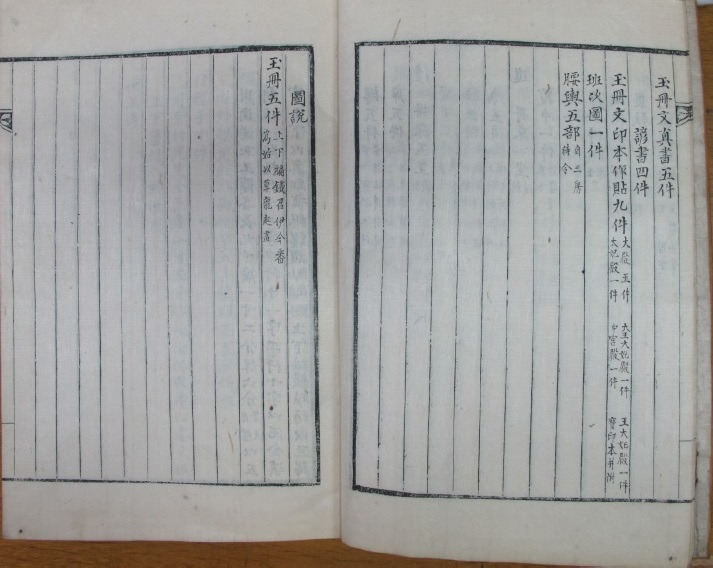 玉冊文真書五件
諺書四件
玉冊文印本作貼九件 大殿五件 大王大妃殿一件 王大妃殿一件
大妃殿一件 中宮殿一件 寶印本并附
班次圖一件
腰輿五部 自三房
待令
圖說
玉冊五件 上下編鐵召伊今番
為始以單龍起畵